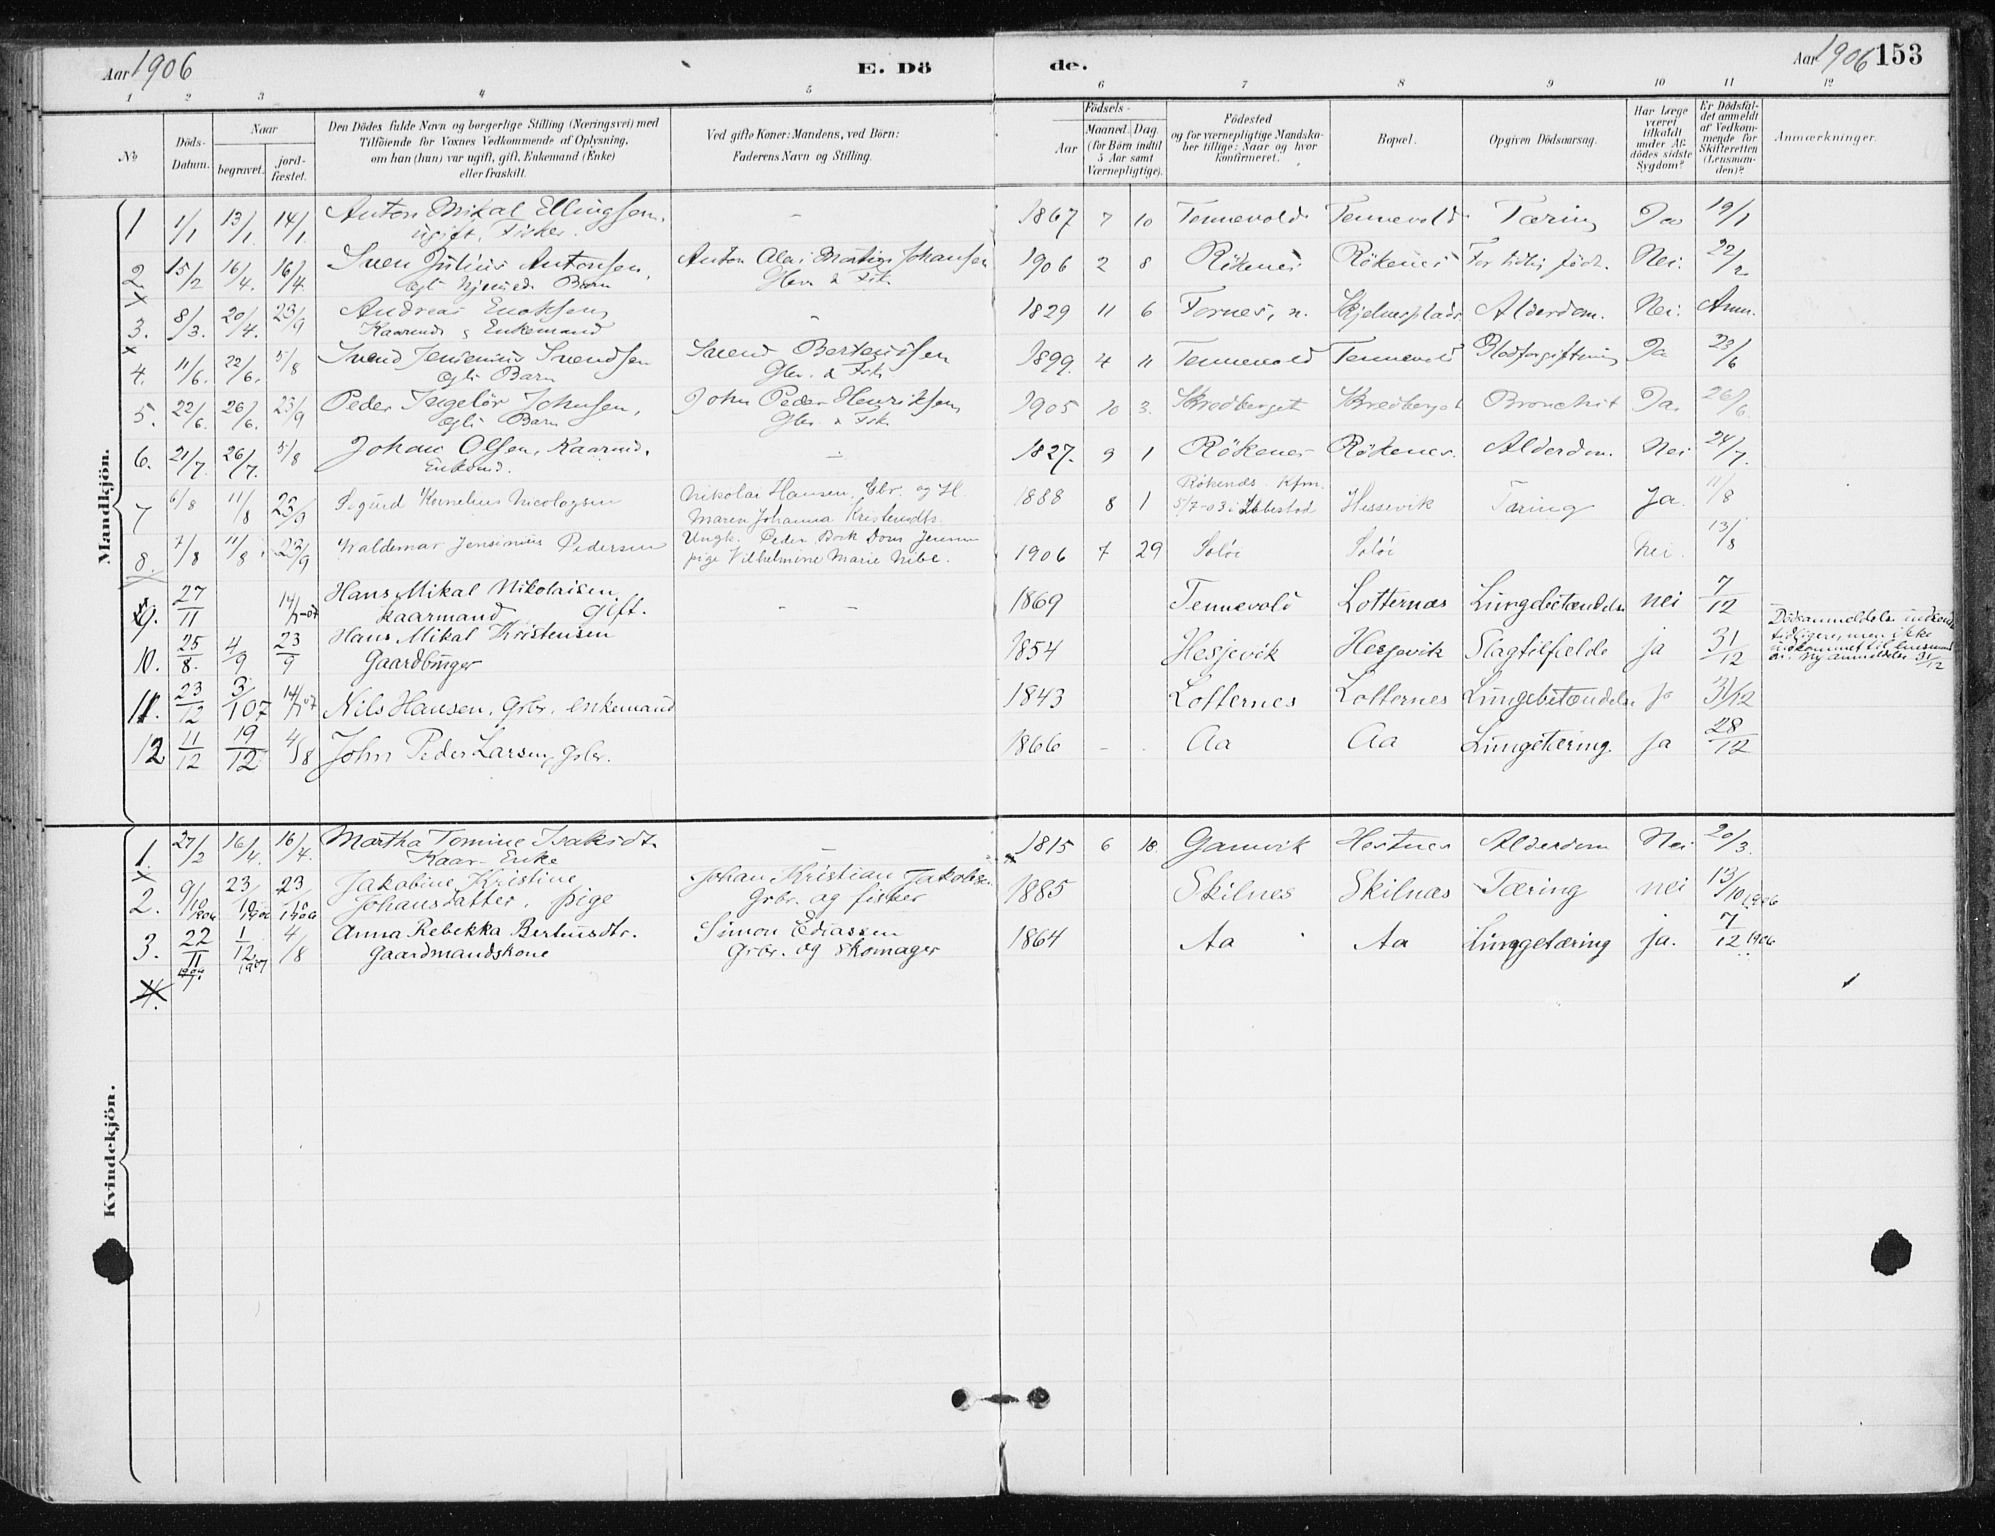 Aar 1906
E. Dö
de.
Aar 1906 153
1 2 3 4 5 6 7 8 9 10 11 12
No
Döds-Datum.
Naar
begravet.
jord-fæstet.
Den Dödes fulde Navn og borgerlige Stilling (Næringsvei) med
Tilföiende for Voxnes Vedkommende af Oplysning,
om han (hun) var ugift, gift, Enkemand (Enke)
eller fraskilt.
Ved gifte Koner: Mandens, ved Börn:
Faderens Navn og Stilling.
Födsels-
Aar
Maaned. Dag.
(for Börn indtil
5 Aar samt
Værnepligtige).
Födested
og for værnepligtige Mandska-
ber tillige: Naar og hvor
konfirmeret.
Bopæl.
Opgiven Dödsaarsag.
Har Læge
været
tilkaldt
under Af-
dödes sidste
Sygdom?
Er Dödsfal-
det anmeldt
af Vedkom-
mende for
Skifteretten
(Lensman-
den)?
Anmærkninger.
Mandkjön.
1 1/1 13/1. 14/1. Anton Mikal Ellingsen, - 1867 7 10 Tennevold Tennevold Tæring Ja 19/1
ugift. Fisker.
2 15/2 16/4. 16/4. Sven Julius Antonsen, Anton Olai Martin Johansen 1906 2 8 Rökenes Rökenes For tidlig födt. Nei. 22/2
Barn
3. 8/3. 20/4. 23/9 Andreas Enoksen, - 1829 11 6 Fornes, n. Alderdom. Nei. Anm.
Kaarmd. Enkemand
4. 11/6. 22/6. 5/8 Svend Jensenius Svendsen Svend Berteussen 1899. 4 11 Tennevold Tennevold Blodforgiftning Ja 23/6
egte Barn Gbr. & Fisk.
5. 22/6. 26/6. 23/9 Peder Ingelör Johnsen, John Peder Henriksen, 1905 10 3. Skredberget Bronchit Ja. 26/6.
egte Barn Gbr & Fisk.
6. 21/7. 26/7. 5/8 Johan Olsen, Kaarmd. - 1827. 9 1 Rökenes Rökenes. Alderdom. Nei 24/7.
Enkemd.
7 6/8 11/8 23/9 Sigurd Kornelius Nicolaysen Nikolai Hansen, Gbr. og H. 1888 8 1 Rökenes. Kfm. Hessevik Tæring Ja. 11/8
Maren Johanna Kristensdtr. 5/7-03 i Ibbestad
8. 7/8 11/8. 23/9 Waldemar Jensinius Pedersen Ungk. Peder Bork Dons Jensen 1906 7 29 Soløi Soløi Nei. 13/8
pige Vilhelmine Marie Nibe.
9. 27/11 14/7-07 Hans Mikal Nikolaisen, - - 1869 Tennevold Lotternæs Lungebetændelse nei 7/12
kaarmand gift.
10. 25/8. 4/9 23/9 Hans Mikal Kristensen 1854 Hesjevik Hesjevik Slagtilfælde ja 31/12
Gaardbruger
Dödsanmeldelse indsendt
tidligere, men ikke
indkommet til lensmand
en. Ny anmeldelse 31/12
11. 23/12 3/107 14/7 07 Nils Hansen, Grbr. enkemand 1843 Lotternes Lotternes Lungebetændelse ja 31/12
12 11/12 19/12. 4/8 John Peder Larsen, Grbr. 1866 - - Aa Aa Lungetæring. ja 28/12
Kvindekjön.
1. 27/2 16/4. 16/4. Martha Tomine Isaksdt. - 1815 6 18 Gamvik Hestnes Alderdom Nei 20/3.
Kaar-Enke
2. 9/10 1906 23/10 1906 23/10 1906 Jakobine Kristine Johan Kristian Jakobsen 1885 Skilnes Skilnæs Tæring nei 13/10 1906
Johansdatter, pige Grbr. og fisker
3. 22/11 1/12 1907 4/8 Anna Rebekka Bertheusdtr. Simon Ediassen 1864 Aa Aa Lungetæring ja. 7/12 1906
Gaardmandskone Grbr. og skomager
4.